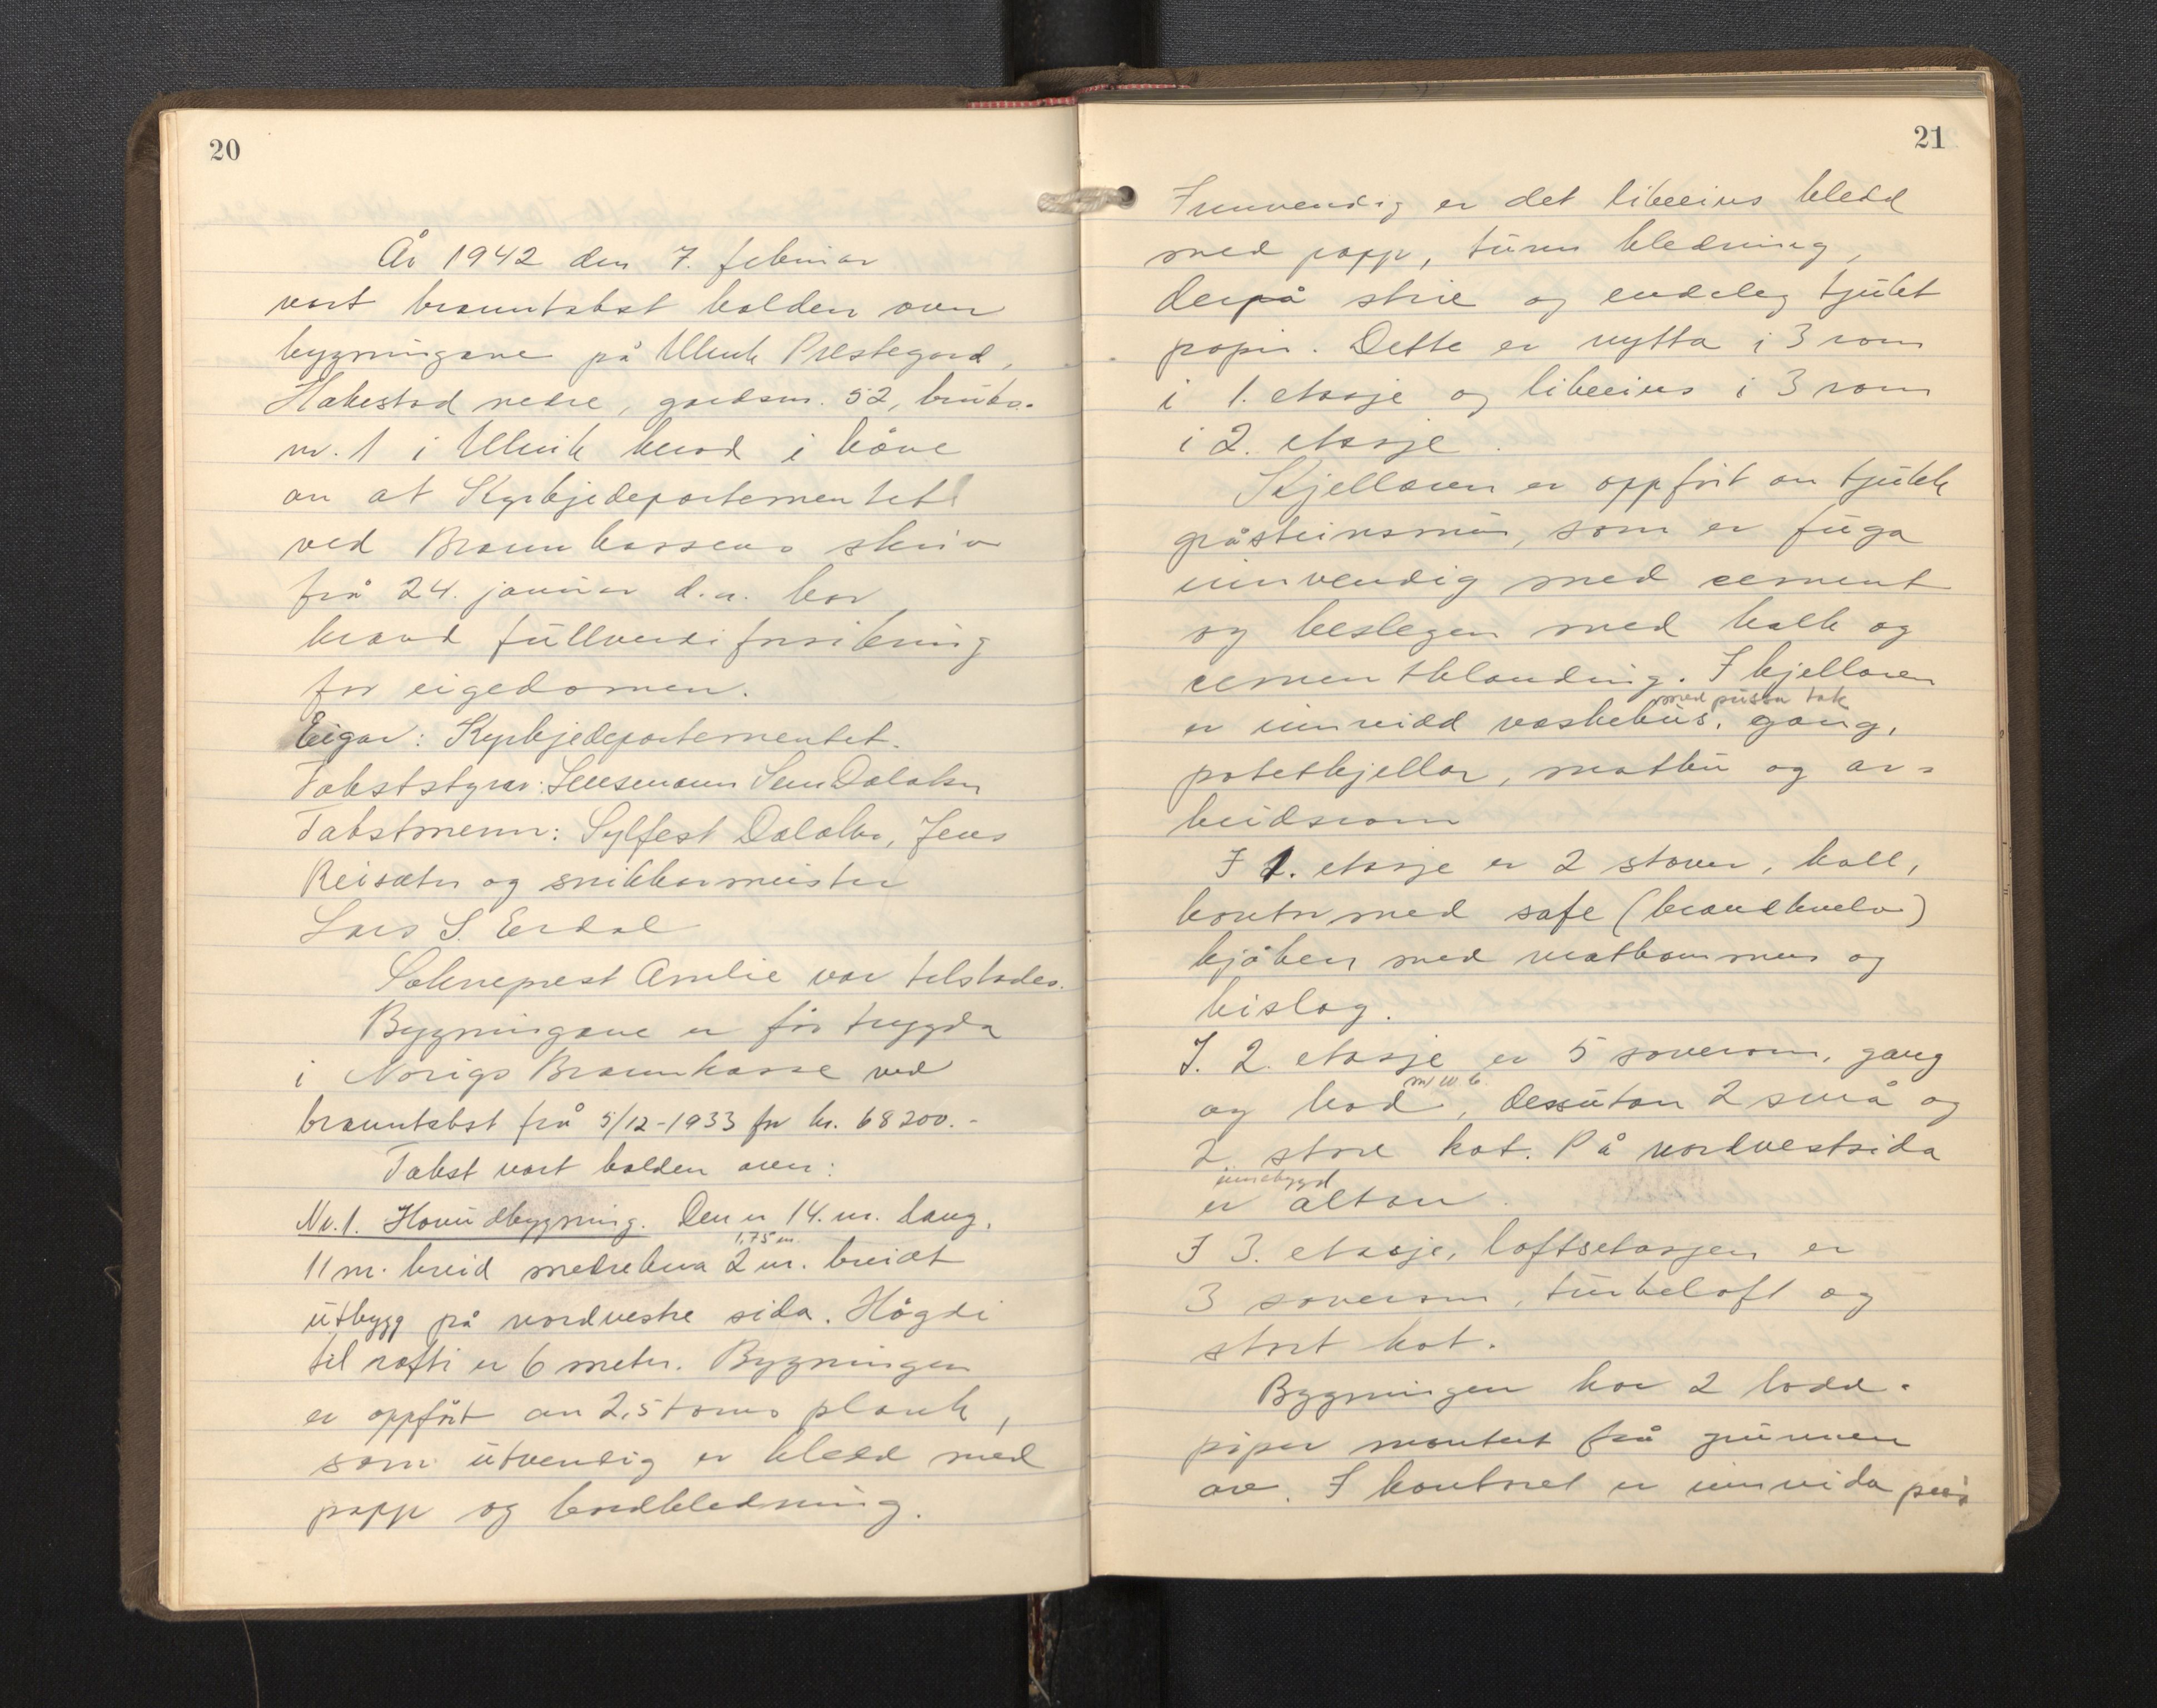 20
År 1942 den 7. februar
vart branntakst halden over
bygningane på Ulvik Prestegard,
Hakestad nedre, gardsnr. 52, bruks-
nr. 1 i Ulvik herad i håve
av at Kyrkjedepartementet
ved Brannkassens skriv
frå 24. januar d.a. har
kravd fullverdiforsikring
for eigedomen.
Eigar: Kyrkjedepartementet.
Takststyrar: Lensmann Dalaker
Takstmenn: Sylfest Dalaker, Jens
Reisæter og snikkarmeister
Lars S. Erdal
Sokneprest Amlie var tilstades.
Bygningane er før trygda
i Norigs Brannkasse ved
branntakst frå 5/12-1933 for kr. 68200.-
Takst vart halden over:
Nr. 1. Hovudbygning. Den er 14. m. lang,
1,75 m.
11 m. breid medrekna 2 m. breidt
utbygg på nordvestre sida. Høgdi
til rafti er 6 meter. Bygningen
er oppført av 2,5 toms plank,
som utvendig er kledd med
papp og bordkledning.
21
Innvendig er det tibeeins kledd
med papp, tunn kledning,
derpå strie og endeleg tjukt
papir. Dette er nytta i 3 rom
i 1. etasje og i 3 rom
i 2. etasje.
Kjellaren er oppført av tjukk
gråsteinsmur, som er fuga
innvendig med cement
og beslegen med kalk og
cementblanding. I kjellaren
med pussa tak
er innreidd vaskehus, gang,
potetkjellar, matbu og ar-
beidsrom
I 1. etasje er 2 stover, hall,
kontor med safe (brandkvelv)
kjøken med matkammers og
bislag.
I. 2. etasje er 5 soverom, gang
m/ w.c.
og bad, dessutan 2 små og
2 store kot. På nordvestsida
innebygd
er altan.
I 3. etasje, loftsetasjen er
3 soverom, turkeloft og
stort kot.
Bygningen har 2 lodd-
piper montert frå grunnen
av. I kontoret er innreida peis